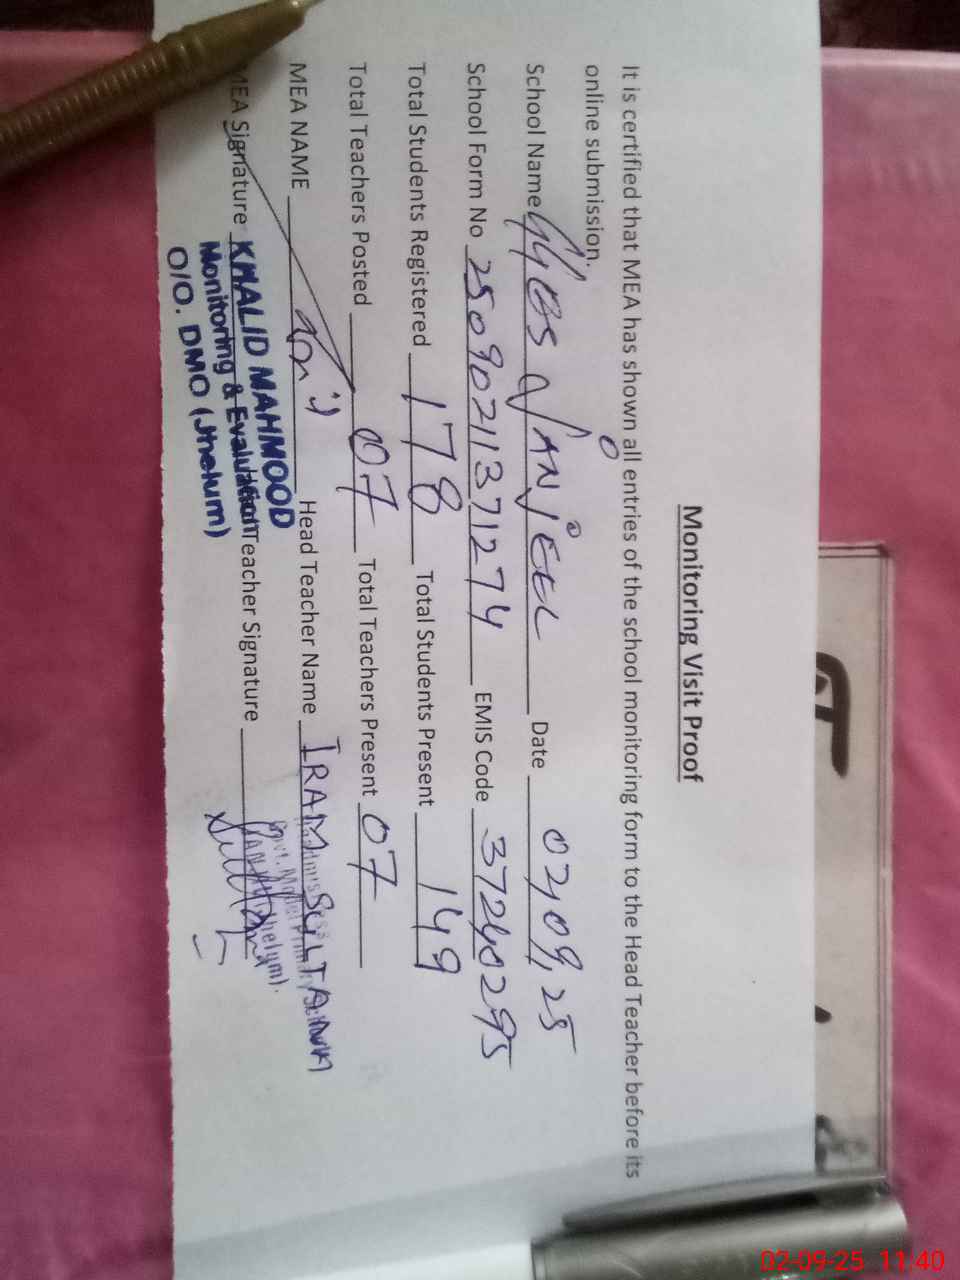 Monitoring Visit Proof
It is certified that MEA has shown all entries of the school monitoring form to the Head Teacher before its
online submission.
School Name Date 02,09,25
School Form No 2509021137 1274 EMIS Code 37240295
Total Students Registered 178 Total Students Present 149
Total Teachers Posted 07 Total Teachers Present 07
MEA NAME Head Teacher Name IRAM SULTANA
MEA Signature KHALID MAHMOOD Teacher Signature
Monitoring & Evaluation
O/O. DMO (Jhelum)
02-09-25 11:40